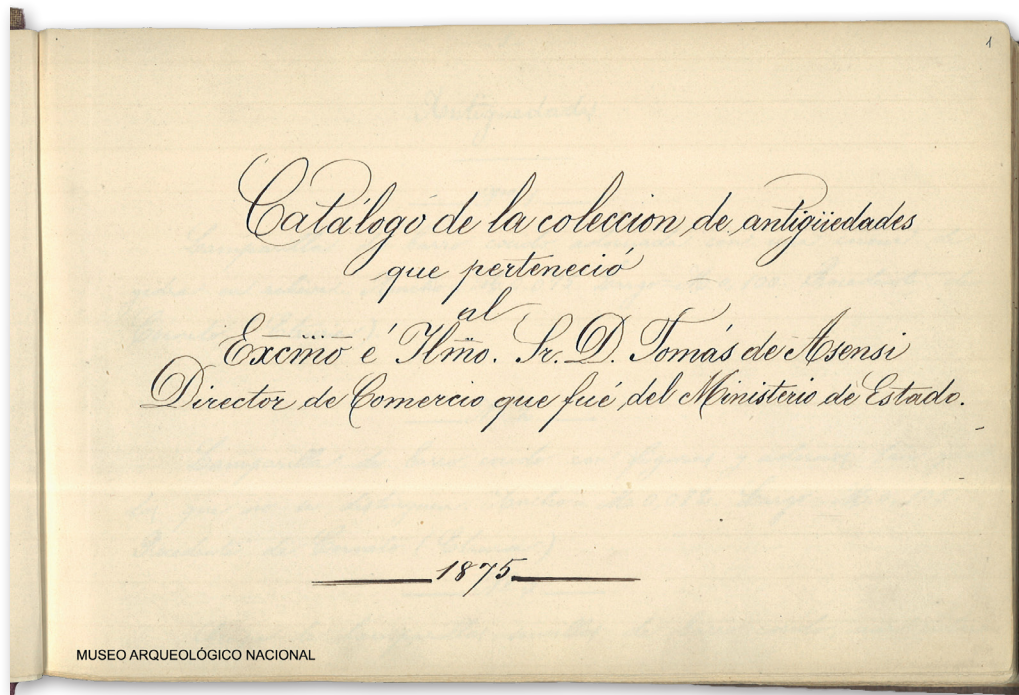 1
Catálogo de la coleccion de antigüedades
que perteneció
al
Excmo é Ilmo. Sr. D. Tomás de Asensi
Director de Comercio que fué del Ministerio de Estado.
1875
MUSEO ARQUEOLÓGICO NACIONAL